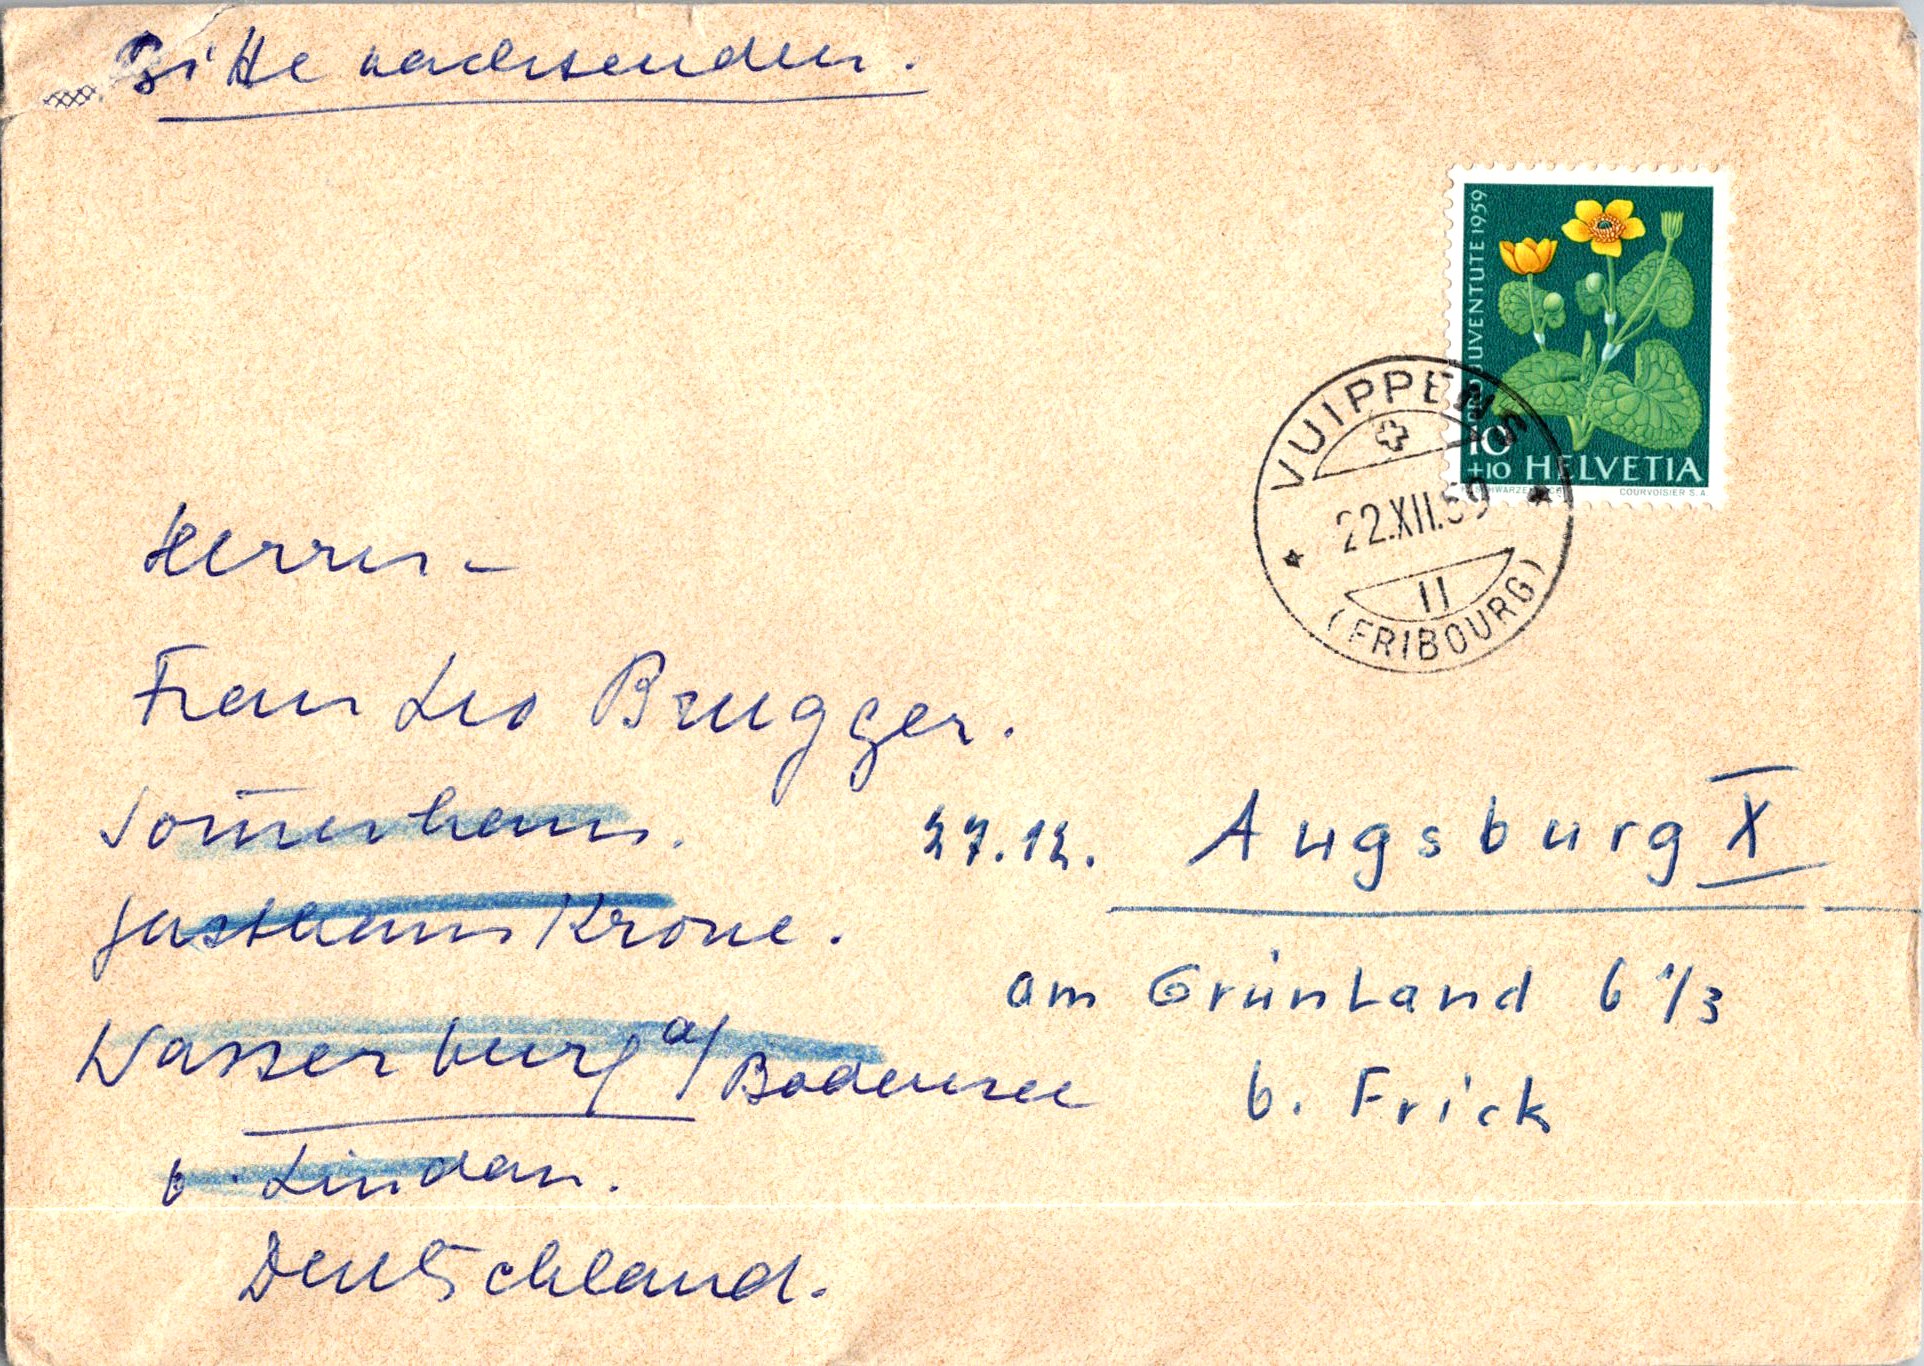 Bitte nachsenden.
PRO JUVENTUTE 1959
10
+10 HELVETIA
COURVOISIER S.A.
VUIPPENS
22.XII.59
II
(FRIBOURG)
Herrn
Frau Leo Brugger.
Som̄erhaus.
Gasthaus Krone.
Wasserburg a/Bodensee
b. Lindau.
Deutschland.
27.12. Augsburg X
am Grünland 6 1/3
b. Frick